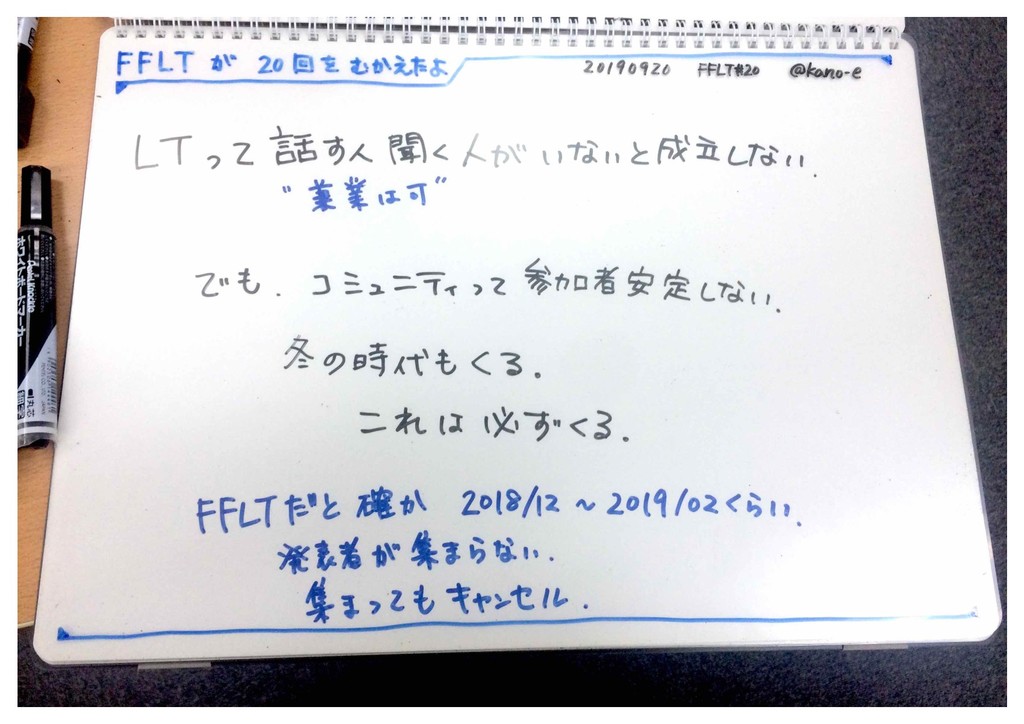 FFLT が 20回を むかえたよ 20190920 FFLT#20 @kano-e
LTって 話す人 聞く人が いないと成立しない.
"兼業は可"
でも. コミュニティって 参加者安定しない.
冬の時代もくる.
これは 必ずくる.
FFLTだと 確か 2018/12 ~ 2019/02くらい.
発表者が集まらない.
集まっても キャンセル.
ホワイトボードマーカー